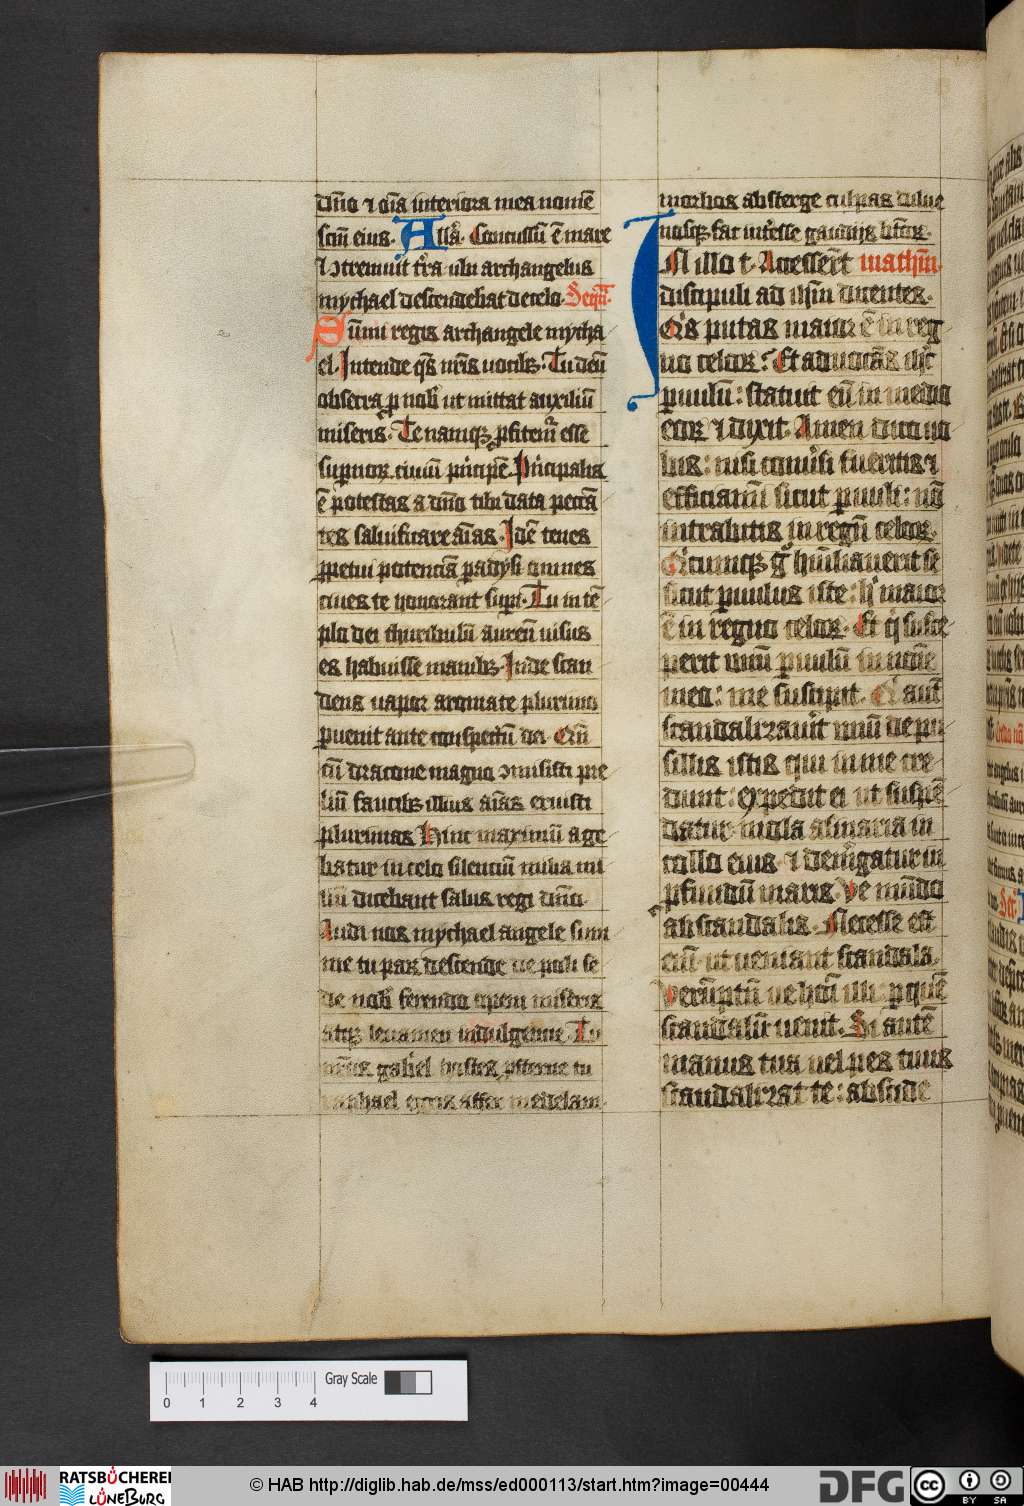 dn̄o ⁊ om̄ia interiora mea nomē
sc̄m eius. All̄a. Concussū ē mare
⁊ ↄtremuit t̄ra ubi archangelus
mychael descendebat de celo. Seqn̄.
Sūmi regis archangele mycha
el. Intende qs̄ nr̄is uocibꝫ. Tu deū
obsecra ꝓ nob̄ ut mittat auxiliū
miseris. Te namqꝫ ꝓfitem̄ esse
supnoꝝ ciuiū pͥncipē. Pͥncipalis
ē potestas a dn̄o tibi data pecca
tes saluificare aīas. Idē tenes
ꝑpetui potencia ꝑadysi omnes
ciues te honorant supi. Tu in tē
plo dei thuribulū aureū uisus
es habuisse manibꝫ. Inde scan
dens uapor aromate plurimo
ꝑuenit ante conspectū dei
cū dracone magno ↄmisisti pre
liū faucibꝫ illius aīas eruisti
plurimas Hinc maximū age
batur in celo silenciū milia mi
liū dicebant salus regi dn̄o.
Audi nos mychael angele sum
me tu par descende de poli se
de nob̄ ferendo opem miseris
atqꝫ leuamen indulgencie. Tu
gab̄el hostes ꝓsterne tu
raphael egris affer medelam.
morbos absterge culpas dilue
nosqꝫ fac int̄esse gaudijs bt̄oꝝ.
IN illo t. Accesser̄t mathm̄.
discipuli ad ih̄m dicentes.
Qͥs putas maior ē in reg
no celoꝝ? Et aduocās ih̄c
puulū: statuit eū in medio
eoꝝ ⁊ dixit. Amen dico uo
bis: nisi conūsi fueritis ⁊
efficiamī sicut puuli: nō
intrabitis in regnū celoꝝ.
Qͥcumqꝫ gͦ humiliauerit se
sicut puulus iste: hͥ maior
ē in regno celoꝝ. Et qͥ susce
perit unū puulū in noīe
meo: me suscipit. Qͥ aut̄
scandalizauit unū de pu
sillis istis qui in me cre
dunt: expedit ei ut suspē
datur mola asinaria in
collo eius ⁊ dem̄gatur in
ꝓfundū maris. Ve mūdo
ab scandalis. Necesse est
eni ut ueniant scandala.
Verūptn̄ ue hoī illi ꝑ quē
scandalū uenit. Si autē
manus tua uel pes tuus
scandalizat te: abscide
0 1 2 3 4
Gray Scale
RATSBÜCHEREI
LÜNEBURG
© HAB http://diglib.hab.de/mss/ed000113/start.htm?image=00444
DFG
cc
BY SA